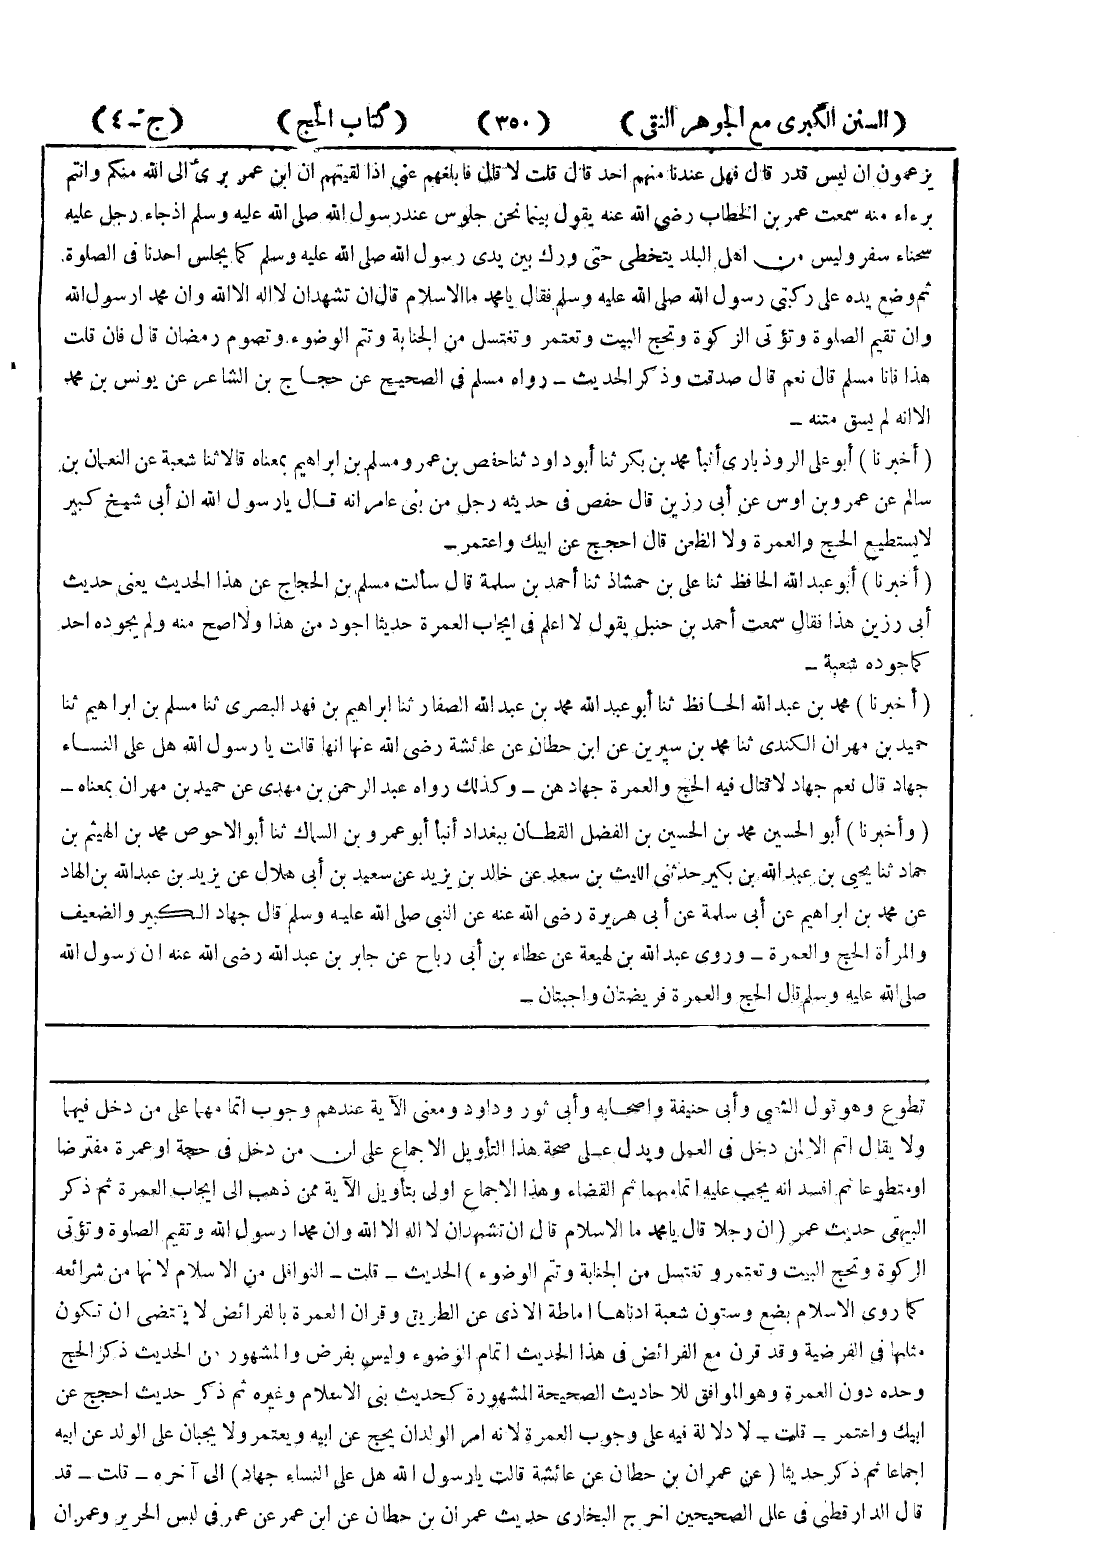 ( السنن الكبرى مع الجوهر النقى ) ( ٣٥٠ ) ( كتاب الحج ) ( ج - ٤ )
يزعمون ان ليس قدر قال فهل عندنا منهم احد قال قلت لا قال فابلغهم عنى اذا لقيتهم ان ابن عمر برىٔ الى الله منكم وانتم
برءاء منه سمعت عمر بن الخطاب رضى الله عنه يقول بينما نحن جلوس عند رسول الله صلى الله عليه وسلم اذجاء رجل عليه
سحناء سفر وليس من اهل البلد يتخطى حتى ورك بين يدى رسول الله صلى الله عليه وسلم كما يجلس احدنا فى الصلوة
ثم وضع يده على ركبتى رسول الله صلى الله عليه وسلم فقال يامحمد ما الاسلام قال ان تشهدان لا اله الا الله وان محمد ارسول الله
وان تقيم الصلوة وتؤتى الزكوة وتحج البيت وتعتمر وتغتسل من الجنابة وتتم الوضوء وتصوم رمضان قال فان قلت
هذا فانا مسلم قال نعم قال صدقت وذكر الحديث - رواه مسلم فى الصحيح عن حجاج بن الشاعر عن يونس بن محمد
الا انه لم يسق متنه -
( أخبرنا ) أبو على الروذبارى أنبأ محمد بن بكر ثنا أبوداود ثنا حفص بن عمر ومسلم بن ابراهيم بمعناه قالا ثنا شعبة عن النعمان بن
سالم عن عمرو بن اوس عن أبى رزين قال حفص فى حديثه رجل من بنى عامر انه قال يارسول الله ان أبى شيخ كبير
لايستطيع الحج والعمرة ولا الظعن قال احجج عن ابيك واعتمر -
( أخبرنا ) أبو عبد الله الحافظ ثنا على بن حمشاذ ثنا أحمد بن سلمة قال سألت مسلم بن الحجاج عن هذا الحديث يعنى حديث
أبى رزين هذا فقال سمعت أحمد بن حنبل يقول لا اعلم فى ايجاب العمرة حديثا اجود من هذا ولا اصح منه ولم يجوده احد
كما جوده شعبة -
( أخبرنا ) محمد بن عبد الله الحافظ ثنا أبو عبد الله محمد بن عبد الله الصفار ثنا ابراهيم بن فهد البصرى ثنا مسلم بن ابراهيم ثنا
حميد بن مهران الكندى ثنا محمد بن سيرين عن ابن حطان عن عائشة رضى الله عنها انها قالت يا رسول الله هل على النساء
جهاد قال نعم جهاد لا قتال فيه الحج والعمرة جهاد هن - وكذلك رواه عبد الرحمن بن مهدى عن حميد بن مهران بمعناه -
( وأخبرنا ) أبو الحسين محمد بن الحسين بن الفضل القطان ببغداد أنبأ أبو عمرو بن السماك ثنا أبو الاحوص محمد بن الهيثم بن
حماد ثنا يحيى بن عبد الله بن بكير حدثنى الليث بن سعد عن خالد بن يزيد عن سعيد بن أبى هلال عن يزيد بن عبد الله بن الهاد
عن محمد بن ابراهيم عن أبى سلمة عن أبى هريرة رضى الله عنه عن النبى صلى الله عليه وسلم قال جهاد الكبير والضعيف
والمرأة الحج والعمرة - وروى عبد الله بن لهيعة عن عطاء بن أبى رباح عن جابر بن عبد الله رضى الله عنه ان رسول الله
صلى الله عليه وسلم قال الحج والعمرة فريضتان واجبتان -
تطوع وهو قول الشعبى وأبى حنيفة واصحابه وأبى ثور وداود ومعنى الآية عندهم وجوب اتما مهما على من دخل فيهما
ولا يقال اتم الا لمن دخل فى العمل ويدل على صحة هذا التأويل الاجماع على ان من دخل فى حجة او عمرة مفترضا
او متطوعا ثم افسد انه يجب عليه اتمامهما ثم القضاء وهذا الاجماع اولى بتأويل الآية ممن ذهب الى ايجاب العمرة ثم ذكر
البيهقى حديث عمر ( ان رجلا قال يامحمد ما الاسلام قال ان تشهدان لا اله الا الله وان محمدا رسول الله وتقيم الصلوة وتؤتى
الزكوة وتحج البيت وتعتمر وتغتسل من الجنابة وتتم الوضوء ) الحديث - قلت - النوافل من الاسلام لانها من شرائعه
كما روى الاسلام بضع وستون شعبة ادناها اماطة الاذى عن الطريق وقران العمرة بالفرائض لا يقتضى ان تكون
مثلها فى الفرضية وقد قرن مع الفرائض فى هذا الحديث اتمام الوضوء وليس بفرض والمشهور من الحديث ذكر الحج
وحده دون العمرة وهو الموافق للاحاديث الصحيحة المشهورة كحديث بنى الاسلام وغيره ثم ذكر حديث احجج عن
ابيك واعتمر - قلت - لا دلالة فيه على وجوب العمرة لانه امر الولدان يحج عن ابيه ويعتمر ولا يجبان على الولد عن ابيه
اجماعا ثم ذكر حديثا ( عن عمران بن حطان عن عائشة قالت يارسول الله هل على النساء جهاد ) الى آخره - قلت - قد
قال الدارقطنى فى علل الصحيحين اخرج البخارى حديث عمران بن حطان عن ابن عمر عن عمر فى لبس الحرير وعمران